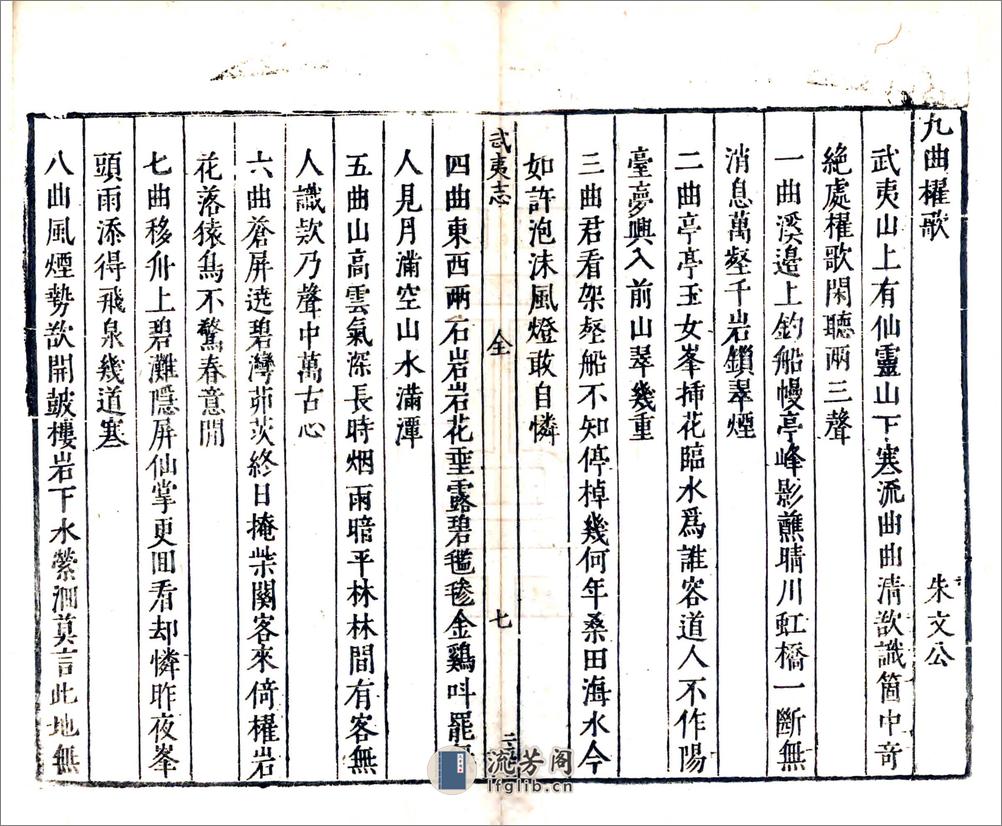 九曲櫂歌 朱文公
武夷山上有仙靈山下寒流曲曲清欲識箇中奇
絕處櫂歌閑聽兩三聲
一曲溪邉上釣船幔亭峰影蘸晴川虹橋一斷無
消息萬壑千岩鎖翠煙
二曲亭亭玉女峯挿花臨水爲誰容道人不作陽
臺夢興入前山翠幾重
三曲君看架壑船不知停棹幾何年桑田海水今
如許泡沫風燈敢自憐
武夷志 全 七
四曲東西兩石岩岩花垂露碧㲯毿金鷄呌罷
人見月滿空山水滿潭
五曲山高雲氣深長時烟雨暗平林林間有客無
人識欵乃聲中萬古心
六曲蒼屏遶碧灣茆茨終日掩柴関客來倚櫂岩
花落猿鳥不驚春意閒
七曲移舟上碧灘隱屏仙掌更囬看却憐昨夜峯
頭雨添得飛泉幾道寒
八曲風煙勢欲開皷樓岩下水縈洄莫言此地無
流芳阁
lfglib.cn